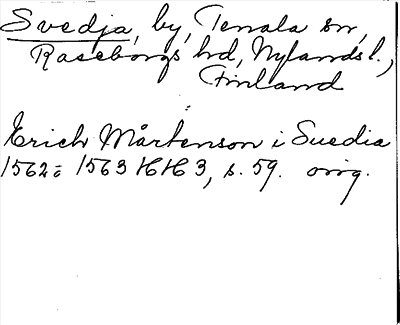 Svedja, by, Tenala sn,
Raseborgs hd, Nylands l.,
Finland
Erich Mårtenson i Suedia
1562-1563 KH 3, s. 59. orig.